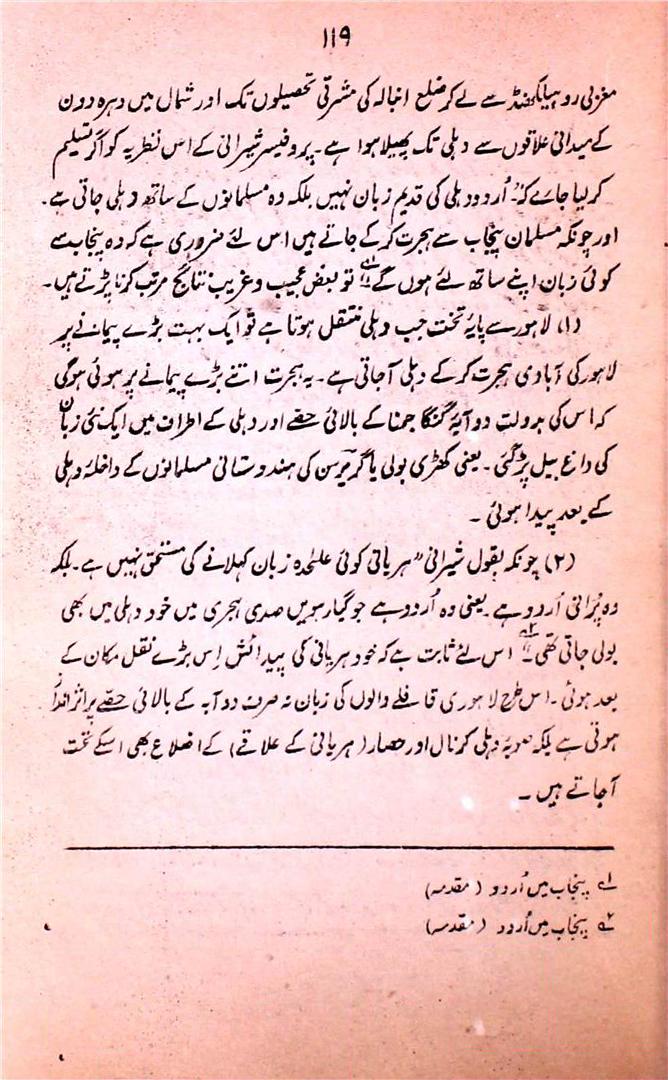 ۱۱۹
مغربی روہیلکھنڈ سے لے کر ضلع انبالہ کی مشرقی تحصیلوں تک اور شمال میں دہرہ دون
کے میدانی علاقوں سے دہلی تک پھیلا ہوا ہے۔ پروفیسر شیرانی کے اس نظریہ کو اگر تسلیم
کر لیا جائے کہ "اُردو دہلی کی قدیم زبان نہیں بلکہ وہ مسلمانوں کے ساتھ دہلی جاتی ہے۔
اور چونکہ مسلمان پنجاب سے ہجرت کر کے جاتے ہیں اس لئے ضروری ہے کہ وہ پنجاب سے
کوئی زبان اپنے ساتھ لئے ہوں گے" ۱؎ تو بعض عجیب و غریب نتائج مرتب کرنا پڑتے ہیں۔
(۱) لاہور سے پایۂ تخت جب دہلی منتقل ہوتا ہے تو ایک بہت بڑے پیمانے پر
لاہور کی آبادی ہجرت کر کے دہلی آ جاتی ہے۔ یہ ہجرت اتنے بڑے پیمانے پر ہوئی ہوگی
کہ اس کی بدولت دوآبۂ گنگا جمنا کے بالائی حصے اور دہلی کے اطراف میں ایک نئی زبان
کی داغ بیل پڑ گئی۔ یعنی کھڑی بولی یا گریرسن کی ہندوستانی مسلمانوں کے داخلۂ دہلی
کے بعد پیدا ہوئی ۔
(۲) چونکہ بقول شیرانی "ہریانی کوئی علٰحدہ زبان کہلانے کی مستحق نہیں ہے۔ بلکہ
وہ پرانی اُردو ہے یعنی وہ اُردو ہے جو گیارھویں صدی ہجری میں خود دہلی میں بھی
بولی جاتی تھی" ۲؎ اس لئے ثابت ہے کہ خود ہریانی کی پیدائش اِس بڑے نقل مکان کے
بعد ہوئی ۔ اس طرح لاہوری قافلے والوں کی زبان نہ صرف دوآبہ کے بالائی حصے پر اثر انداز
ہوتی ہے بلکہ صوبۂ دہلی کرنال اور حصار (ہریانی کے علاقے) کے اضلاع بھی اسکے تحت
آ جاتے ہیں ۔
۱؎ پنجاب میں اُردو (مقدمہ)
۲؎ پنجاب میں اُردو (مقدمہ)